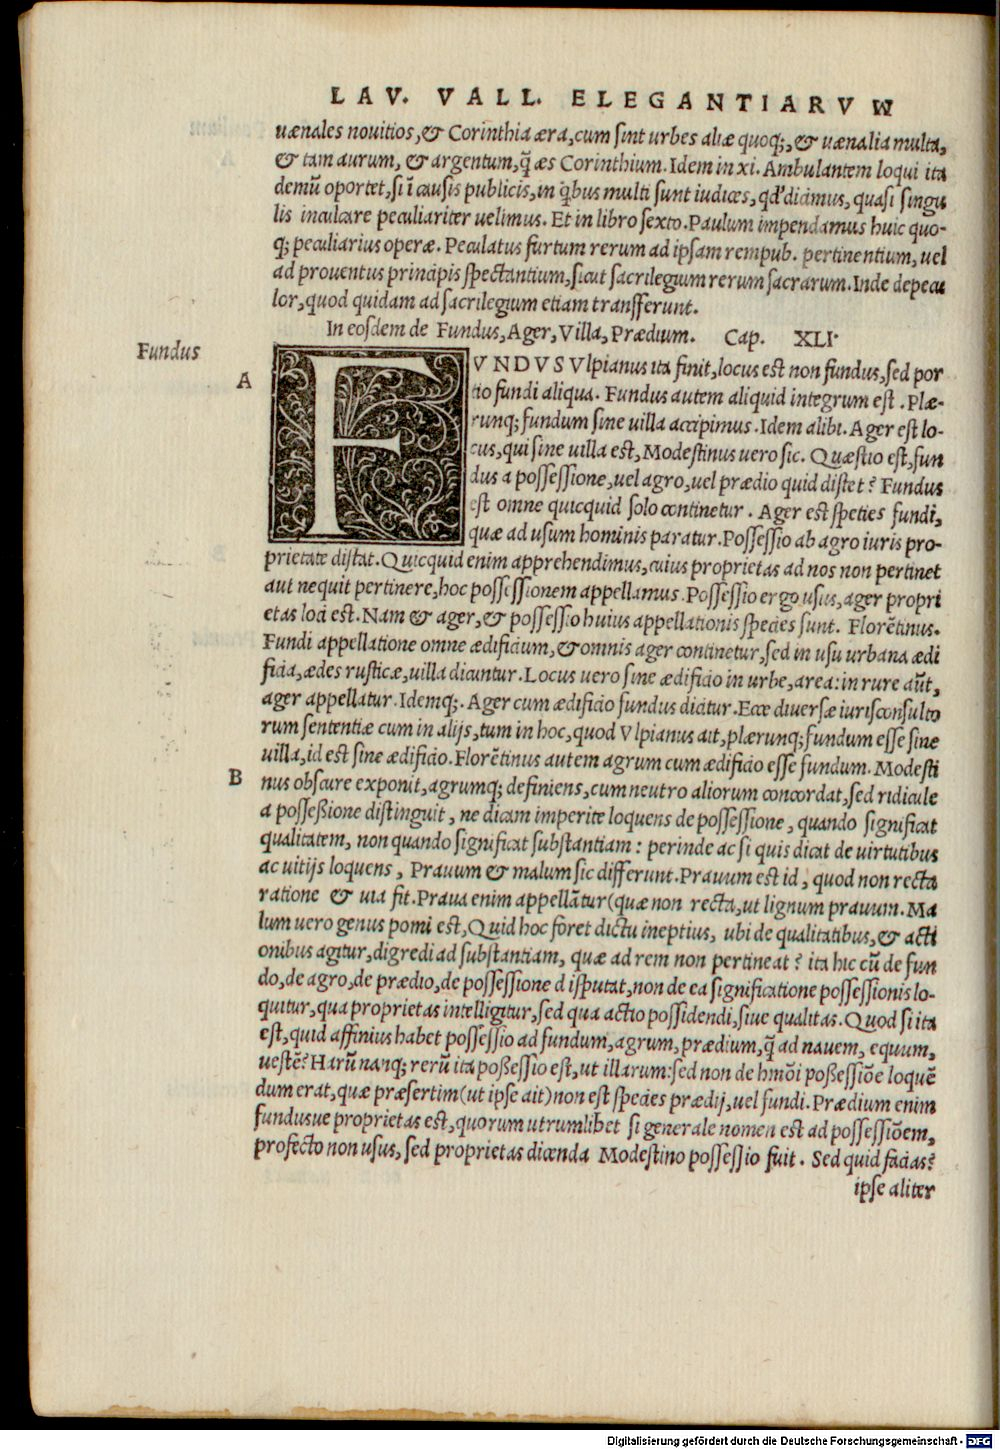 LAV. VALL. ELEGANTIARVM
uænales nouitios,& Corinthia æra,cum sint urbes aliæ quoq;,& uænalia multa,
& tam aurum, & argentum,q̃ æs Corinthium. Idem in xi. Ambulantem loqui ita
demũ oportet,si ĩ causis publicis,in q̃bus multi sunt iudices, qđ dicimus, quasi singu
lis inculcare peculiariter uelimus. Et in libro sexto.Paulum impendamus huic quo-
q; peculiarius operæ. Peculatus furtum rerum ad ipsam rempub. pertinentium, uel
ad prouentus principis spectantium,sicut sacrilegium rerum sacrarum.Inde depecu
lor,quod quidam ad sacrilegium etiam transferunt.
In eosdem de Fundus,Ager,Villa,Prædium. Cap. XLI.
Fundus
A
FVNDVS Vlpianus ita finit,locus est non fundus,sed por
tio fundi aliqua. Fundus autem aliquid integrum est .Plæ-
runq; fundum sine uilla accipimus .Idem alibi. Ager est lo-
cus,qui sine uilla est, Modestinus uero sic. Quæstio est,fun
dus a possessione,uel agro,uel prædio quid distet? Fundus
est omne quicquid solo continetur . Ager est speties fundi,
quæ ad usum hominis paratur.Possessio ab agro iuris pro-
prietate distat.Quicquid enim apprehendimus,cuius proprietas ad nos non pertinet
aut nequit pertinere,hoc possessionem appellamus .Possessio ergo usus,ager propri
etas loci est.Nam & ager,& possessio huius appellationis species sunt. Florẽtinus.
Fundi appellatione omne ædificium,& omnis ager continetur,sed in usu urbana ædi
ficia,ædes rusticæ,uilla dicuntur.Locus uero sine ædificio in urbe,area:in rure aũt,
ager appellatur.Idemq;. Ager cum ædificio fundus dicitur.Ecce diuersæ iurisconsulto
rum sententiæ cum in alijs,tum in hoc,quod Vlpianus ait,plærunq; fundum esse sine
uilla,id est sine ædificio.Florẽtinus autem agrum cum ædificio esse fundum. Modesti
B
nus obscure exponit,agrumq; definiens,cum neutro aliorum concordat,sed ridicule
a possessione distinguit, ne dicam imperite loquens de possessione, quando significat
qualitatem, non quando significat substantiam: perinde ac si quis dicat de uirtutibus
ac uitijs loquens, Prauum & malum sic differunt.Prauum est id, quod non recta
ratione & uia fit.Praua enim appellãtur(quæ non recta,ut lignum prauum.Ma
lum uero genus pomi est,Quid hoc foret dictu ineptius, ubi de qualitatibus,& acti
onibus agitur,digredi ad substantiam, quæ ad rem non pertineat? ita hic cũ de fun
do,de agro,de prædio,de possessione disputat,non de ea significatione possessionis lo-
quitur,qua proprietas intelligitur,sed qua actio possidendi,siue qualitas.Quod si ita
est,quid affinius habet possessio ad fundum,agrum,prædium,q̃ ad nauem, equum,
uestẽ? Harũ nanq; rerũ ita possessio est,ut illarum:sed non de hmõi possessiõe loquẽ
dum erat,quæ præsertim(ut ipse ait)non est species prædij,uel fundi.Prædium enim
fundusue proprietas est,quorum utrumlibet si generale nomen est ad possessiõem,
profecto non usus,sed proprietas dicenda Modestino possessio fuit. Sed quid facias?
ipse aliter
Digitalisierung gefördert durch die Deutsche Forschungsgemeinschaft - DFG